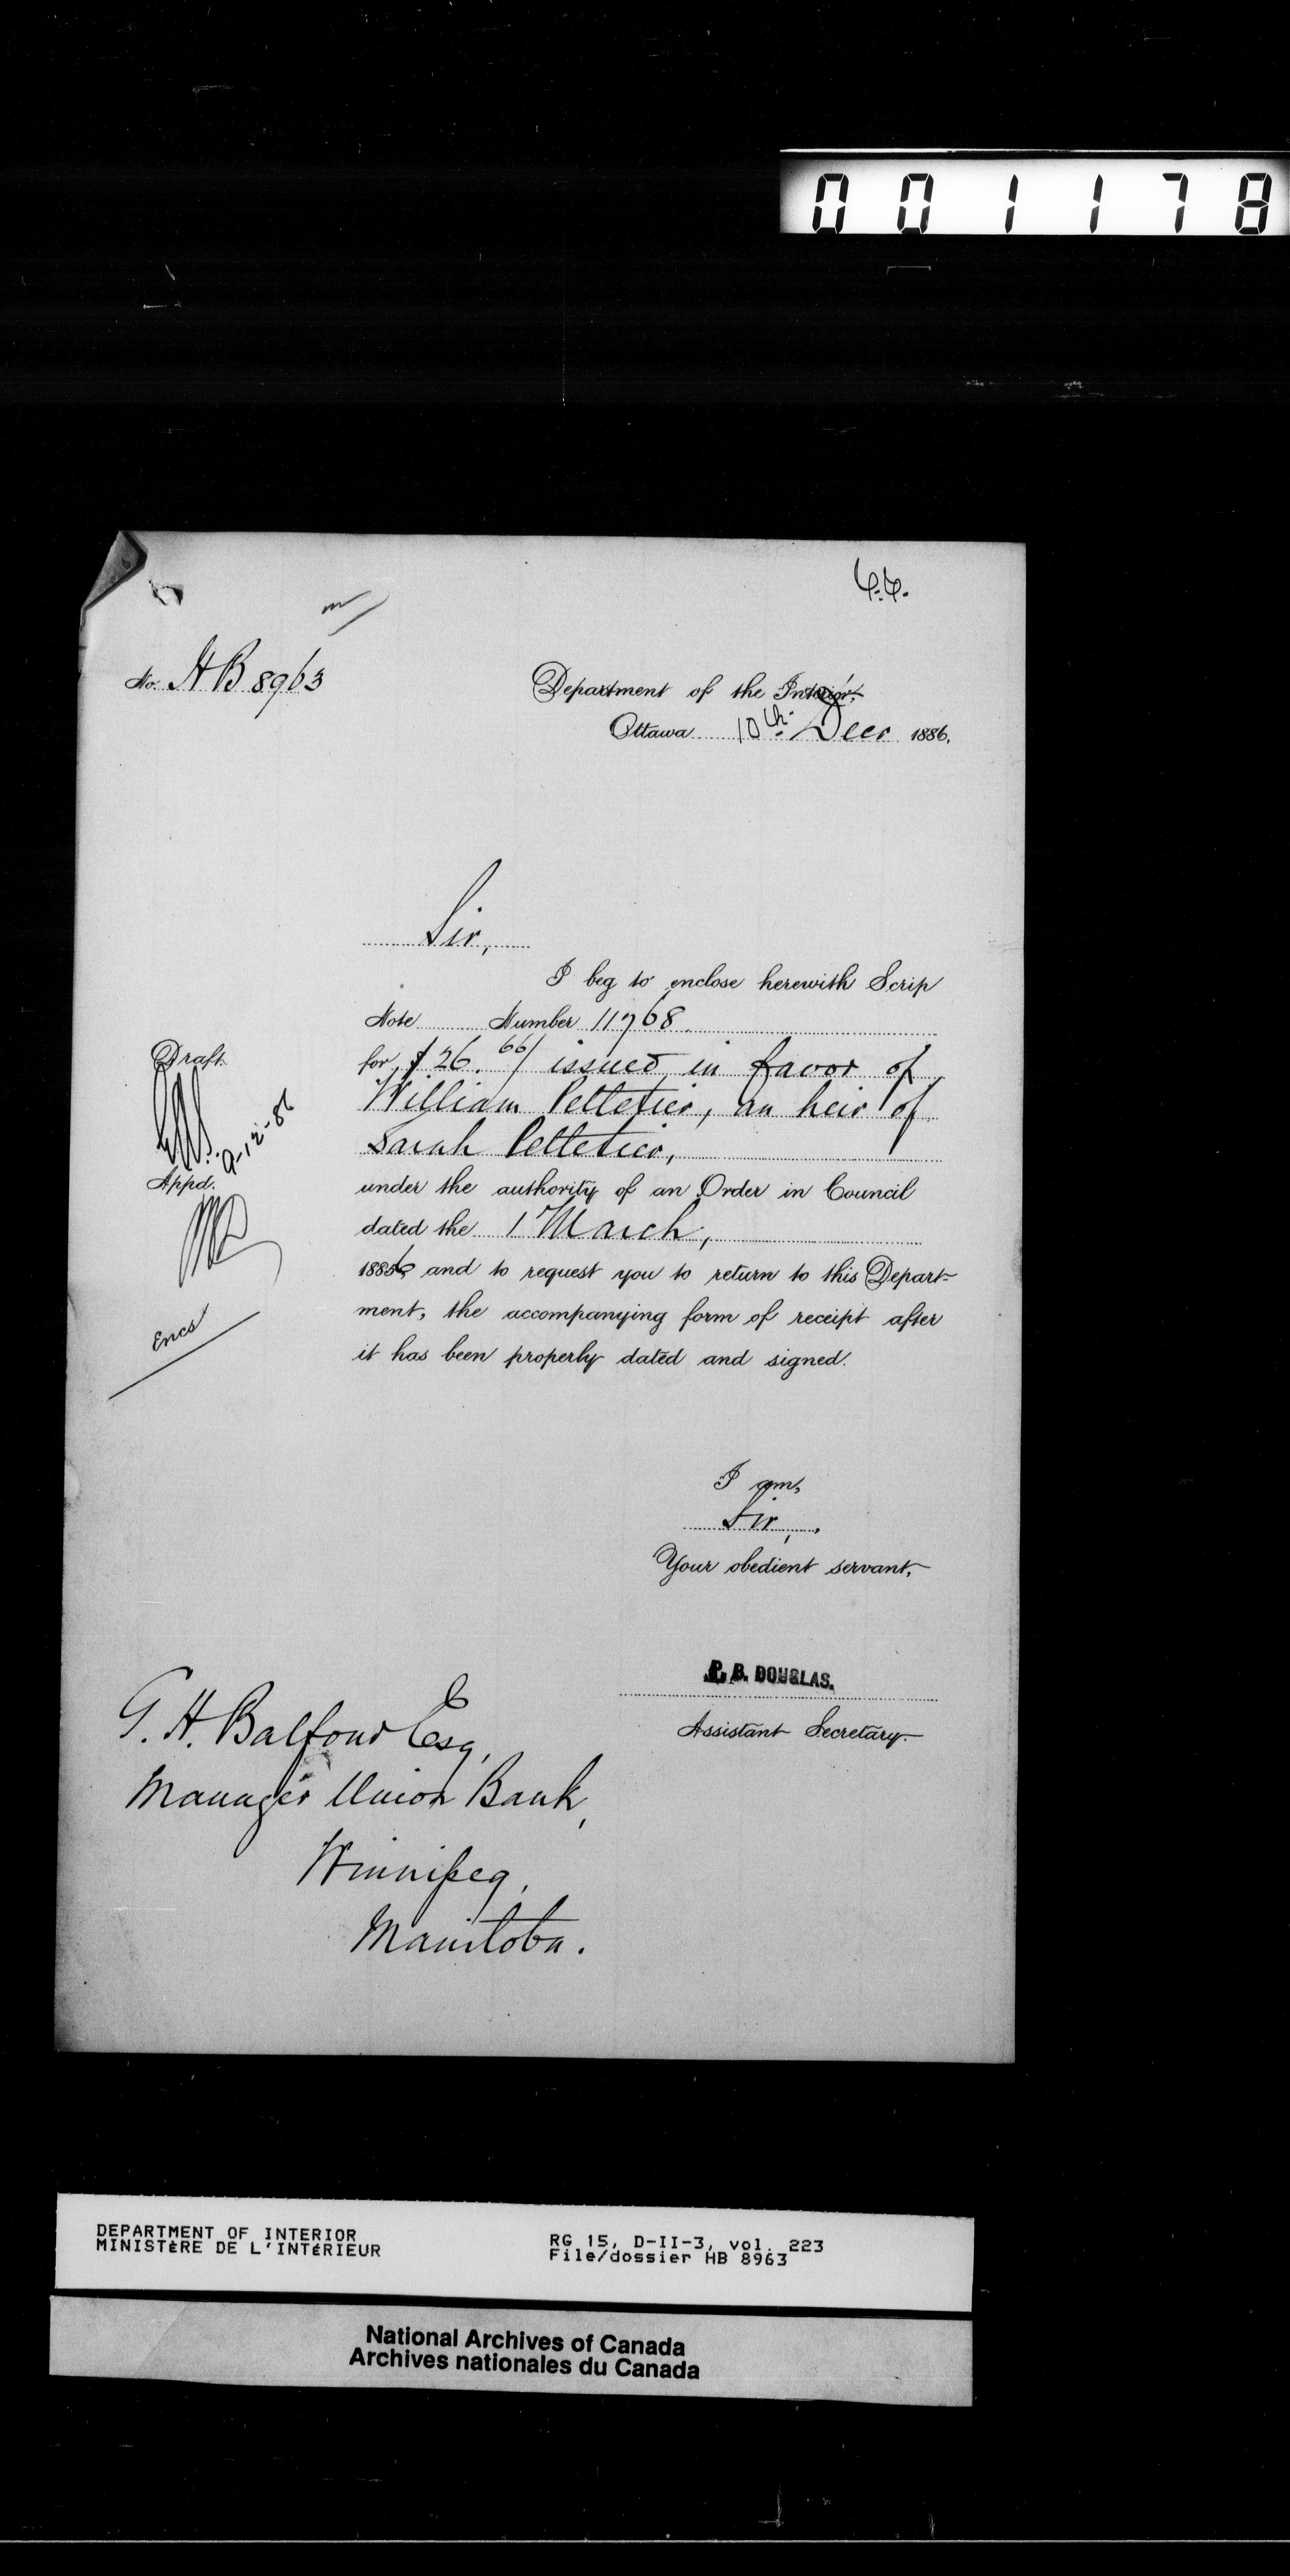 001178
No. HB 8963
Department of the Interior,
Ottawa 10th Decr 1886.
Sir,
I beg to enclose herewith Scrip
Note Number 11768
for $26.66/ issued in favor of
William Pelletier, an heir of
Sarah Pelletier,
under the authority of an Order in Council
dated the 1 March,
1886 and to request you to return to this Depart-
ment, the accompanying form of receipt after
it has been properly dated and signed.
Draft.
9-12-86
Appd.
Encs
I am,
Sir,
Your obedient servant,
P. B. DOUGLAS.
Assistant Secretary.
G. H. Balfour Esq,
Manager Union Bank,
Winnipeg,
Manitoba.
DEPARTMENT OF INTERIOR
MINISTÈRE DE L'INTÉRIEUR
RG 15, D-II-3, vol. 223
File/dossier HB 8963
National Archives of Canada
Archives nationales du Canada